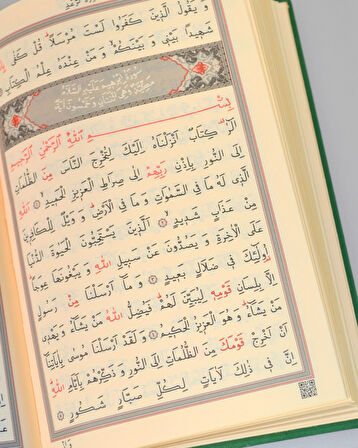 وَ يَقُولُ الَّذِينَ كَفَرُوا لَسْتَ مُرْسَلاً قُلْ كَفَى
شَهِيدًا بَيْنِي وَ بَيْنَكُمْ وَ مَنْ عِنْدَهُ عِلْمُ الْكِتَابِ
بِسْمِ اللهِ الرَّحْمٰنِ الرَّحِيمِ
الٓرٰ كِتَابٌ اَنْزَلْنَاهُ اِلَيْكَ لِتُخْرِجَ النَّاسَ مِنَ الظُّلُمَاتِ
اِلَى النُّورِ بِاِذْنِ رَبِّهِمْ اِلَى صِرَاطِ الْعَزِيزِ الْحَمِيدِ ١ اللهِ
الَّذِى لَهُ مَا فِى السَّمٰوَاتِ وَ مَا فِى الْاَرْضِ وَ وَيْلٌ لِلْكَافِرِينَ
مِنْ عَذَابٍ شَدِيدٍ ٢ اَلَّذِينَ يَسْتَحِبُّونَ الْحَيٰوةَ الدُّنْيَا
عَلَى الْاٰخِرَةِ وَ يَصُدُّونَ عَنْ سَبِيلِ اللهِ وَ يَبْغُونَهَا عِوَجًا
اُولٰئِكَ فِى ضَلَالٍ بَعِيدٍ ٣ وَ مَا اَرْسَلْنَا مِنْ رَسُولٍ
اِلَّا بِلِسَانِ قَوْمِهِ لِيُبَيِّنَ لَهُمْ فَيُضِلُّ اللهُ مَنْ يَشَاءُ وَ يَهْدِى
مَنْ يَشَاءُ وَ هُوَ الْعَزِيزُ الْحَكِيمُ ٤ وَ لَقَدْ اَرْسَلْنَا مُوسٰى بِاٰيَاتِنَا
اَنْ اَخْرِجْ قَوْمَكَ مِنَ الظُّلُمَاتِ اِلَى النُّورِ وَ ذَكِّرْهُمْ بِاَيَّامِ اللهِ
اِنَّ فِى ذٰلِكَ لَاٰيَاتٍ لِكُلِّ صَبَّارٍ شَكُورٍ ٥